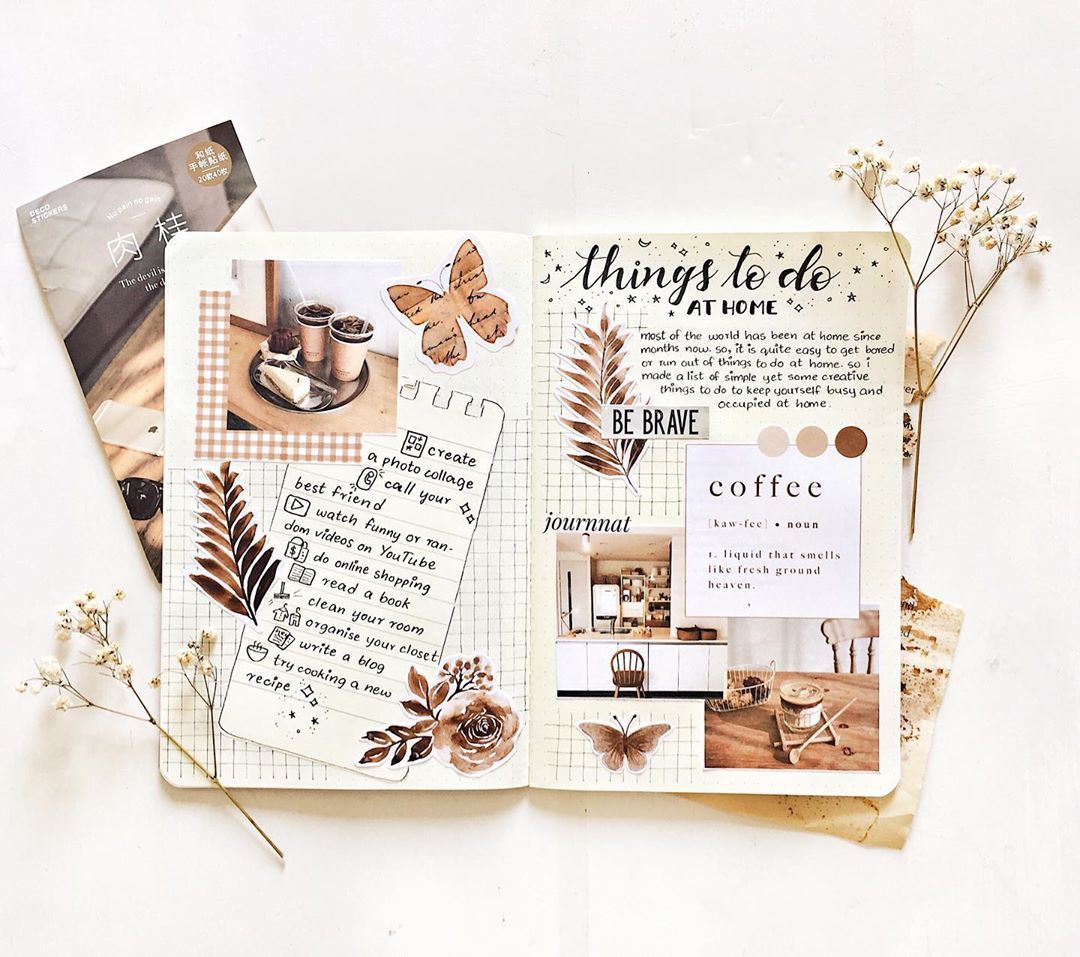 和紙
手帐貼紙
20款40枚
DECO
STICKERS
No pain no gain
肉桂
The devil is
the d
create
a photo collage
call your
best friend
watch funny or ran-
dom videos on YouTube
do online shopping
read a book
clean your room
organise your closet
write a blog
try cooking a new
recipe
things to do
AT HOME
most of the world has been at home since
months now. so, it is quite easy to get bored
or run out of things to do at home. so i
made a list of simple yet some creative
things to do to keep yourself busy and
occupied at home.
BE BRAVE
coffee
[kaw-fee] • noun
1. liquid that smells
like fresh ground
heaven.
journnat